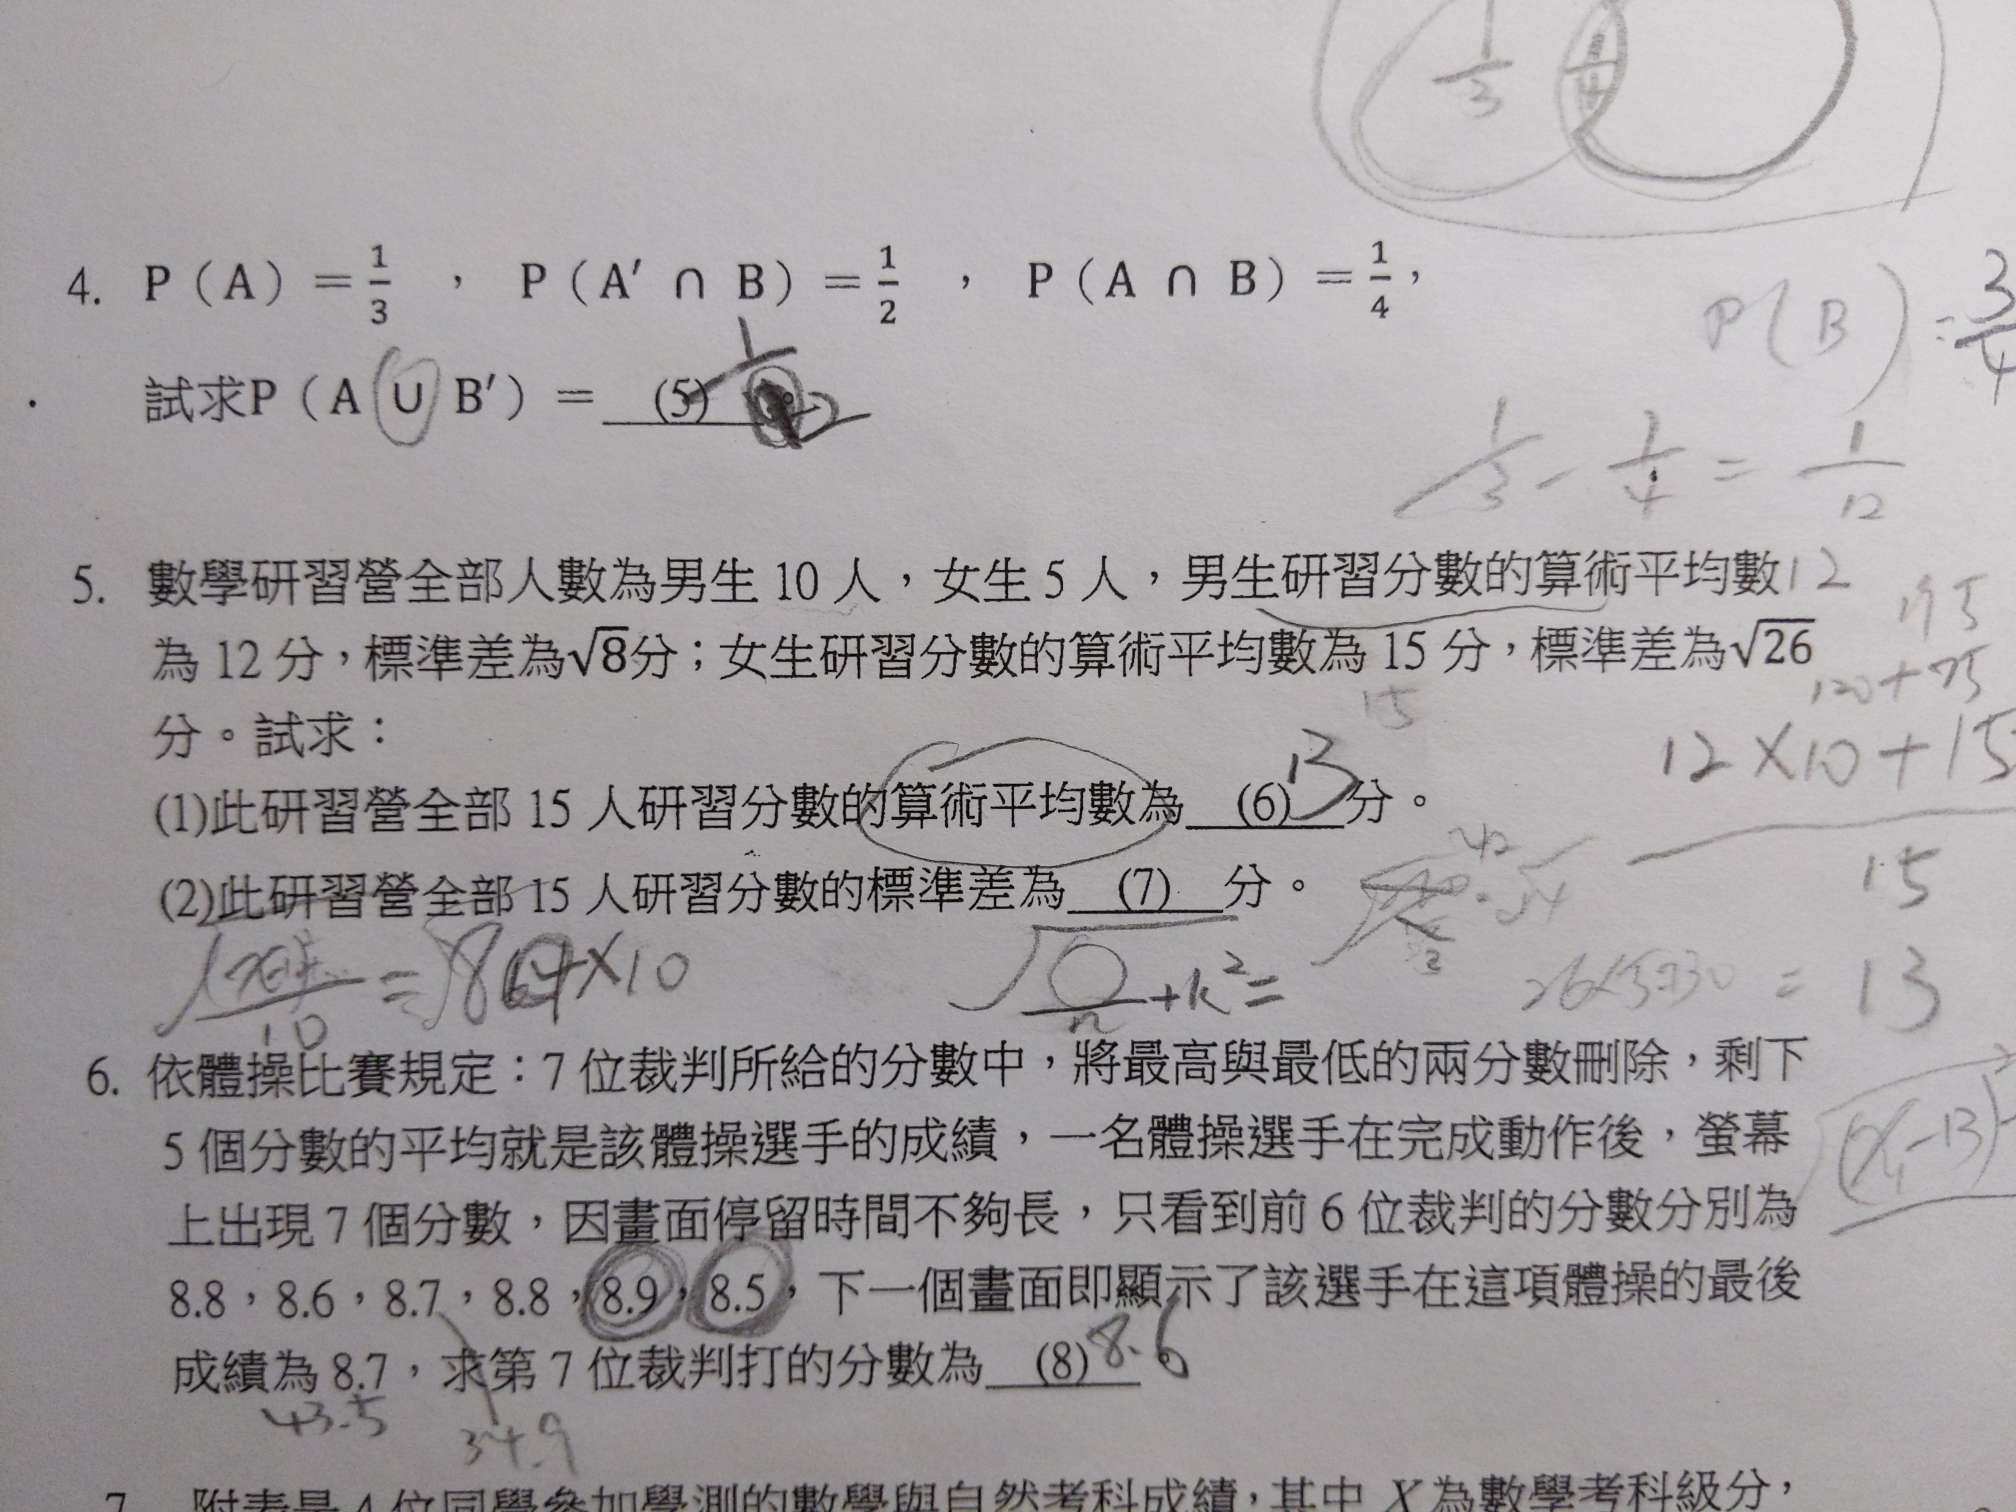 1/3 1/4
4. P(A)=1/3 , P(A′ ∩ B)=1/2 , P(A ∩ B)=1/4,
P(B)=3/4
試求P(A ∪ B′)= (5) 1/2
1/3 - 1/4 = 1/12
5. 數學研習營全部人數為男生 10 人，女生 5 人，男生研習分數的算術平均數 12
195
為 12 分，標準差為√8分；女生研習分數的算術平均數為 15 分，標準差為√26
120+75
15
分。試求：
12×10+15
(1)此研習營全部 15 人研習分數的算術平均數為 (6) 13 分。
15
(2)此研習營全部 15 人研習分數的標準差為 (7) 分。
= 13
10 = 864×10
√ n +k²=
6. 依體操比賽規定：7 位裁判所給的分數中，將最高與最低的兩分數刪除，剩下
5 個分數的平均就是該體操選手的成績，一名體操選手在完成動作後，螢幕
上出現 7 個分數，因畫面停留時間不夠長，只看到前 6 位裁判的分數分別為
8.8，8.6，8.7，8.8，8.9，8.5，下一個畫面即顯示了該選手在這項體操的最後
成績為 8.7，求第 7 位裁判打的分數為 (8) 8.6
43.5
34.9
7. 附表是 4 位同學參加學測的數學與自然考科成績，其中 X 為數學考科級分，